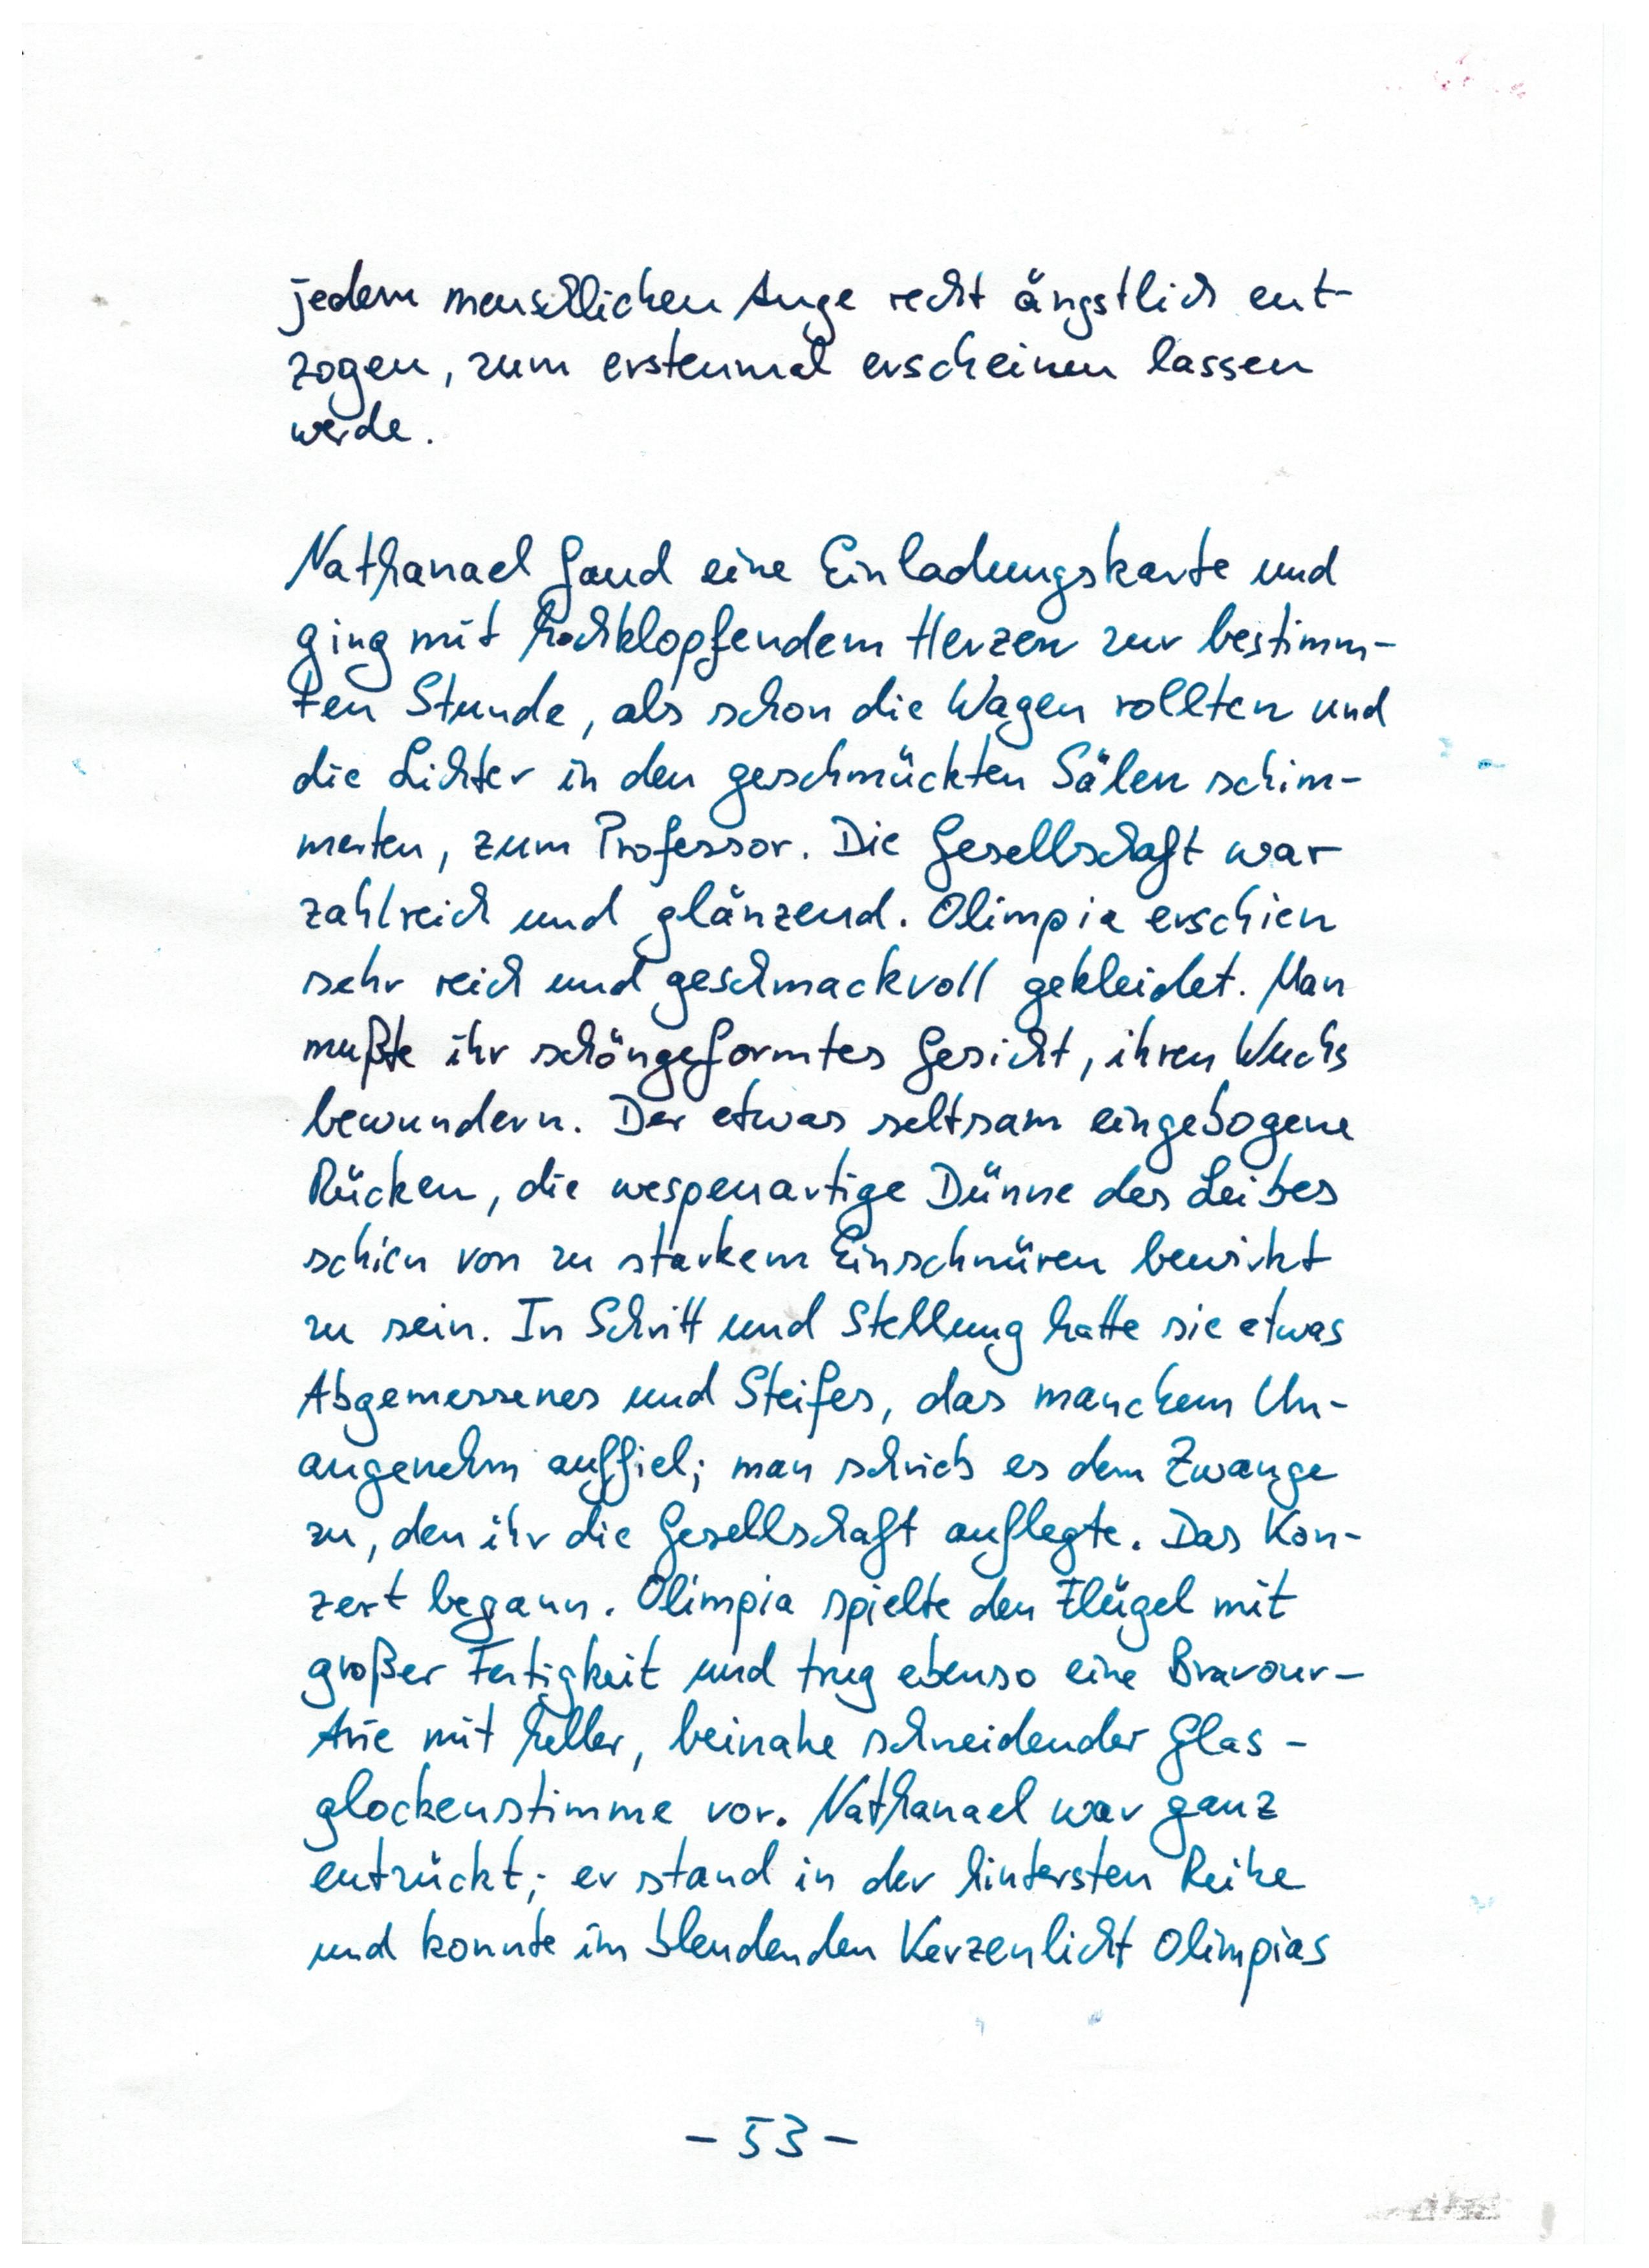 jedem menschlichen Auge recht ängstlich ent-
zogen, zum erstenmal erscheinen lassen
werde.
Nathanael fand eine Einladungskarte und
ging mit hochklopfendem Herzen zur bestimm-
ten Stunde, als schon die Wagen rollten und
die Lichter in den geschmückten Sälen schim-
merten, zum Professor. Die Gesellschaft war
zahlreich und glänzend. Olimpia erschien
sehr reich und geschmackvoll gekleidet. Man
mußte ihr schöngeformtes Gesicht, ihren Wuchs
bewundern. Der etwas seltsam eingebogene
Rücken, die wespenartige Dünne des Leibes
schien von zu starkem Einschnüren bewirkt
zu sein. In Schritt und Stellung hatte sie etwas
Abgemessenes und Steifes, das manchem Un-
angenehm auffiel; man schrieb es dem Zwange
zu, den ihr die Gesellschaft auflegte. Das Kon-
zert begann. Olimpia spielte den Flügel mit
großer Fertigkeit und trug ebenso eine Bravour-
Arie mit heller, beinahe schneidender Glas-
glockenstimme vor. Nathanael war ganz
entzückt; er stand in der hintersten Reihe
und konnte im blendenden Kerzenlicht Olimpias
- 53 -